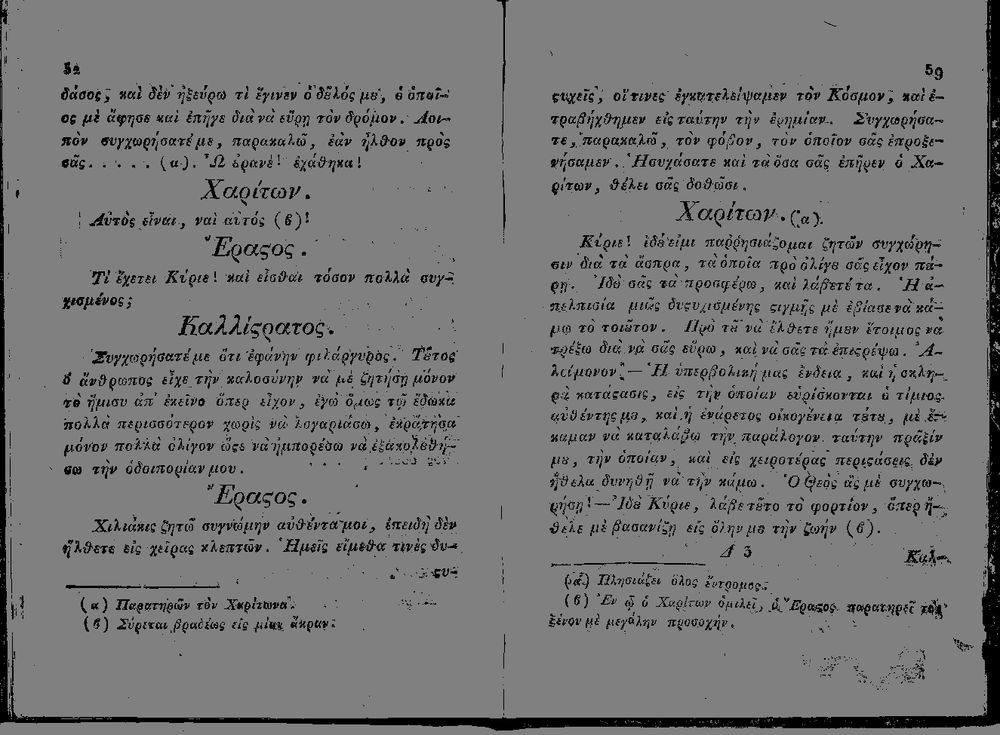 52
δάσος, καὶ δὲν ἠξεύρω τὶ ἔγινεν ὁ δȣ̃λός μȣ, ὁ ὁποῖ-
ος μὲ ἄφησε καὶ ἐπῆγε διὰ νὰ εὕρῃ τὸν δρόμον. Λοι-
πὸν συγχωρήσατέ με, παρακαλῶ, ἐὰν ἦλθον πρὸς
σᾶς..... (α). Ὦ ȣ̓ρανέ! ἐχάθηκα!
Χαρίτων.
Αὐτὸς εἶναι, ναὶ αὐτός (β)!
Ἔραϛος.
Τί ἔχετει Κύριε! καὶ εἶσθαι τόσον πολλὰ συγ-
χισμένος;
Καλλίϛρατος.
Συγχωρήσατέ με ὅτι ἐφάνην φιλάργυρος. Τȣ̃τος
ὁ ἄνθρωπος εἶχε τὴν καλοσύνην νὰ μὲ ζητήσῃ μόνον
τὸ ἥμισυ ἀπ' ἐκεῖνο ὅπερ εἶχον, ἐγὼ ὅμως τῷ ἔδωκα
πολλὰ περισσότερον χωρὶς νὰ λογαριάσω, ἐκράτησα
μόνον πολλὰ ὀλίγον ὥϛε νὰ ἠμπορέσω νὰ ἐξακολȣθή-
σω τὴν ὁδοιπορίαν μου.
Ἔραϛος.
Χιλιάκις ζητῶ συγνώμην αὐθέντα μοι, ἐπειδὴ δὲν
ἤλθετε εἰς χεῖρας κλεπτῶν. Ἡμεῖς εἴμεθα τινὲς δυ-
ϛυ-
(α) Παρατηρῶν τὸν Χαρίτωνα.
(β) Σύρεται βραδέως εἰς μίαν ἄκραν.
59
ϛυχεῖς, οἵτινες ἐγκατελείψαμεν τὸν Κόσμον, καὶ ἐ-
τραβήχθημεν εἰς ταύτην τὴν ἐρημίαν. Συγχωρήσα-
τε, παρακαλῶ, τὸν φόβον, τὸν ὁποῖον σᾶς ἐπροξε-
νήσαμεν. Ἡσυχάσατε καὶ τὰ ὅσα σᾶς ἐπῆρεν ὁ Χα-
ρίτων, θέλει σᾶς δοθῶσι.
Χαρίτων. (α).
Κύριε! ἰδȣ̀ εἶμι παῤῥησιάζομαι ζητῶν συγχώρη-
σιν διὰ τὰ ἄσπρα, τὰ ὁποῖα πρὸ ὀλίγȣ σᾶς εἶχον πά-
ρῃ. Ἰδȣ̀ σᾶς τὰ προσφέρω, καὶ λάβετέ τα. Ἡ ἀ-
πελπισία μιᾶς δυϛυχισμένης ϛιγμῆς μὲ ἐβίασε νὰ κά-
μω τὸ τοιȣ̃τον. Πρὸ τȣ̃ νὰ ἔλθετε ἤμεν ἕτοιμος νὰ
τρέξω διὰ νὰ σᾶς εὕρω, καὶ νὰ σᾶς τὰ ἐπιϛρέψω. Ἀ-
λοίμονον! — Ἡ ὑπερβολική μας ἔνδεια, καὶ ἡ σκλη-
ρὰ κατάϛασις, εἰς τὴν ὁποίαν εὑρίσκονται ὁ τίμιος
αὐθέντης μȣ, καὶ ἡ ἐνάρετος οἰκογένεια τȣ́τȣ, μὲ ἔ-
καμαν νὰ καταλάβω τὴν παράλογον ταύτην πρᾶξίν
μȣ, τὴν ὁποίαν, καὶ εἰς χειροτέρας περιϛάσεις δὲν
ἤθελα δυνηθῆ νὰ τὴν κάμω. Ὁ Θεὸς ἂς μὲ συγχω-
ρήσῃ! — Ἰδȣ̀ Κύριε, λάβε τȣ̃το τὸ φορτίον, ὅπερ ἤ-
θελε μὲ βασανίζῃ εἰς ὅλην μȣ τὴν ζωὴν (β).
Δ 3
Καλ-
(α) Πλησιάζει ὅλος ἔντρομος.
(β) Ἐν ᾧ ὁ Χαρίτων ὁμιλεῖ, ὁ Ἔραϛος παρατηρεῖ τὸν
ξένον μὲ μεγάλην προσοχήν.